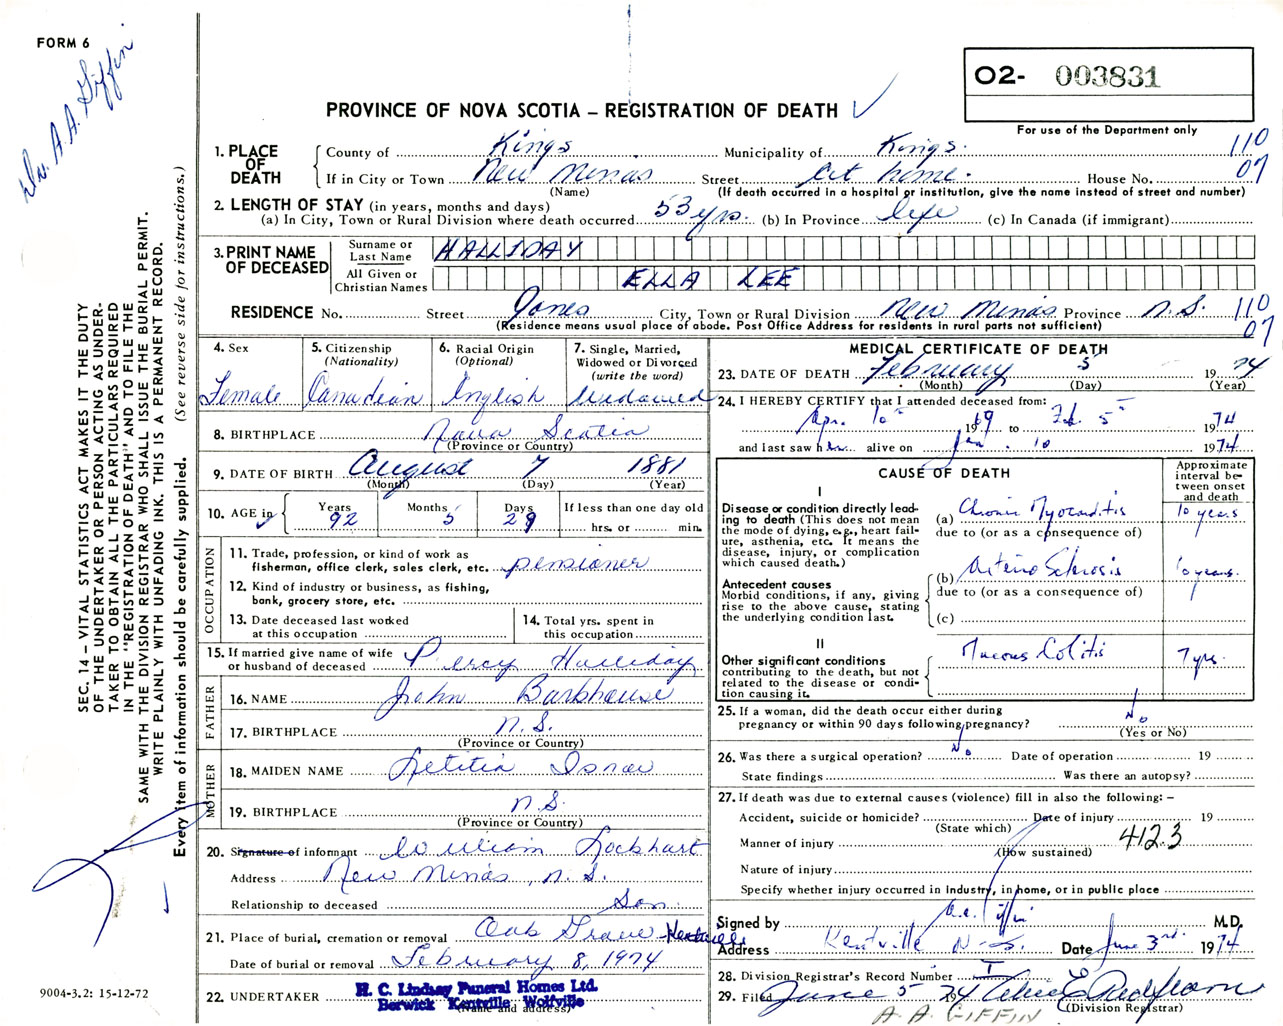 FORM 6
Dr. A. A. Giffin
O2- 003831
For use of the Department only
PROVINCE OF NOVA SCOTIA – REGISTRATION OF DEATH
SEC. 14 – VITAL STATISTICS ACT MAKES IT THE DUTY
OF THE UNDERTAKER OR PERSON ACTING AS UNDER-
TAKER TO OBTAIN ALL THE PARTICULARS REQUIRED
IN THE "REGISTRATION OF DEATH" AND TO FILE THE
SAME WITH THE DIVISION REGISTRAR WHO SHALL ISSUE THE BURIAL PERMIT.
WRITE PLAINLY WITH UNFADING INK. THIS IS A PERMANENT RECORD.
Every item of information should be carefully supplied. (See reverse side for instructions.)
1. PLACE OF DEATH
County of Kings Municipality of Kings. 110
If in City or Town New Minas Street At home. House No. 07
(Name) (If death occurred in a hospital or institution, give the name instead of street and number)
2. LENGTH OF STAY (in years, months and days)
(a) In City, Town or Rural Division where death occurred 53 yrs. (b) In Province life (c) In Canada (if immigrant)
3. PRINT NAME OF DECEASED
Surname or Last Name HALLIDAY
All Given or Christian Names ELLA LEE
RESIDENCE No. Street Jones City, Town or Rural Division New Minas Province N.S. 110
(Residence means usual place of abode. Post Office Address for residents in rural parts not sufficient) 07
4. Sex Female
5. Citizenship (Nationality) Canadian
6. Racial Origin (Optional) English
7. Single, Married, Widowed or Divorced (write the word) Widowed
8. BIRTHPLACE Nova Scotia
(Province or Country)
9. DATE OF BIRTH August 7 1881
(Month) (Day) (Year)
10. AGE in Years 92 Months 5 Days 29 If less than one day old hrs. or min.
OCCUPATION
11. Trade, profession, or kind of work as fisherman, office clerk, sales clerk, etc. pensioner
12. Kind of industry or business, as fishing, bank, grocery store, etc.
13. Date deceased last worked at this occupation
14. Total yrs. spent in this occupation
15. If married give name of wife or husband of deceased Percy Halliday
FATHER
16. NAME John Barkhouse
17. BIRTHPLACE N.S.
(Province or Country)
MOTHER
18. MAIDEN NAME Letitia
19. BIRTHPLACE N.S.
(Province or Country)
20. Signature of informant William Lockhart
Address New Minas, N.S.
Relationship to deceased Son
21. Place of burial, cremation or removal Oak Grove Kentville
Date of burial or removal February 8, 1974
22. UNDERTAKER H. C. Lindsay Funeral Homes Ltd.
Berwick Kentville Wolfville
(Name and address)
9004-3.2: 15-12-72
MEDICAL CERTIFICATE OF DEATH
23. DATE OF DEATH February 5 1974
(Month) (Day) (Year)
24. I HEREBY CERTIFY that I attended deceased from:
Apr. 10 1969 to Feb. 5 1974
and last saw her alive on Jan. 10 1974
CAUSE OF DEATH
Approximate interval between onset and death
I
Disease or condition directly lead-
ing to death (This does not mean
the mode of dying, e.g., heart fail-
ure, asthenia, etc. It means the
disease, injury, or complication
which caused death.)
(a) Chronic Myocarditis 10 years
due to (or as a consequence of)
Antecedent causes
Morbid conditions, if any, giving
rise to the above cause, stating
the underlying condition last.
(b) Arterio Sclerosis 10 years.
due to (or as a consequence of)
(c)
II
Other significant conditions
contributing to the death, but not
related to the disease or condi-
tion causing it.
Mucous Colitis 7 yrs.
25. If a woman, did the death occur either during
pregnancy or within 90 days following pregnancy? No
(Yes or No)
26. Was there a surgical operation? No Date of operation 19
State findings Was there an autopsy?
27. If death was due to external causes (violence) fill in also the following: –
Accident, suicide or homicide? Date of injury 19
(State which)
Manner of injury 4123
(How sustained)
Nature of injury
Specify whether injury occurred in Industry, in home, or in public place
Signed by A.A. Giffin M.D.
Address Kentville N.S. Date June 3rd. 1974
28. Division Registrar's Record Number
29. Filed June 5 1974
(Division Registrar)
A. A. GIFFIN